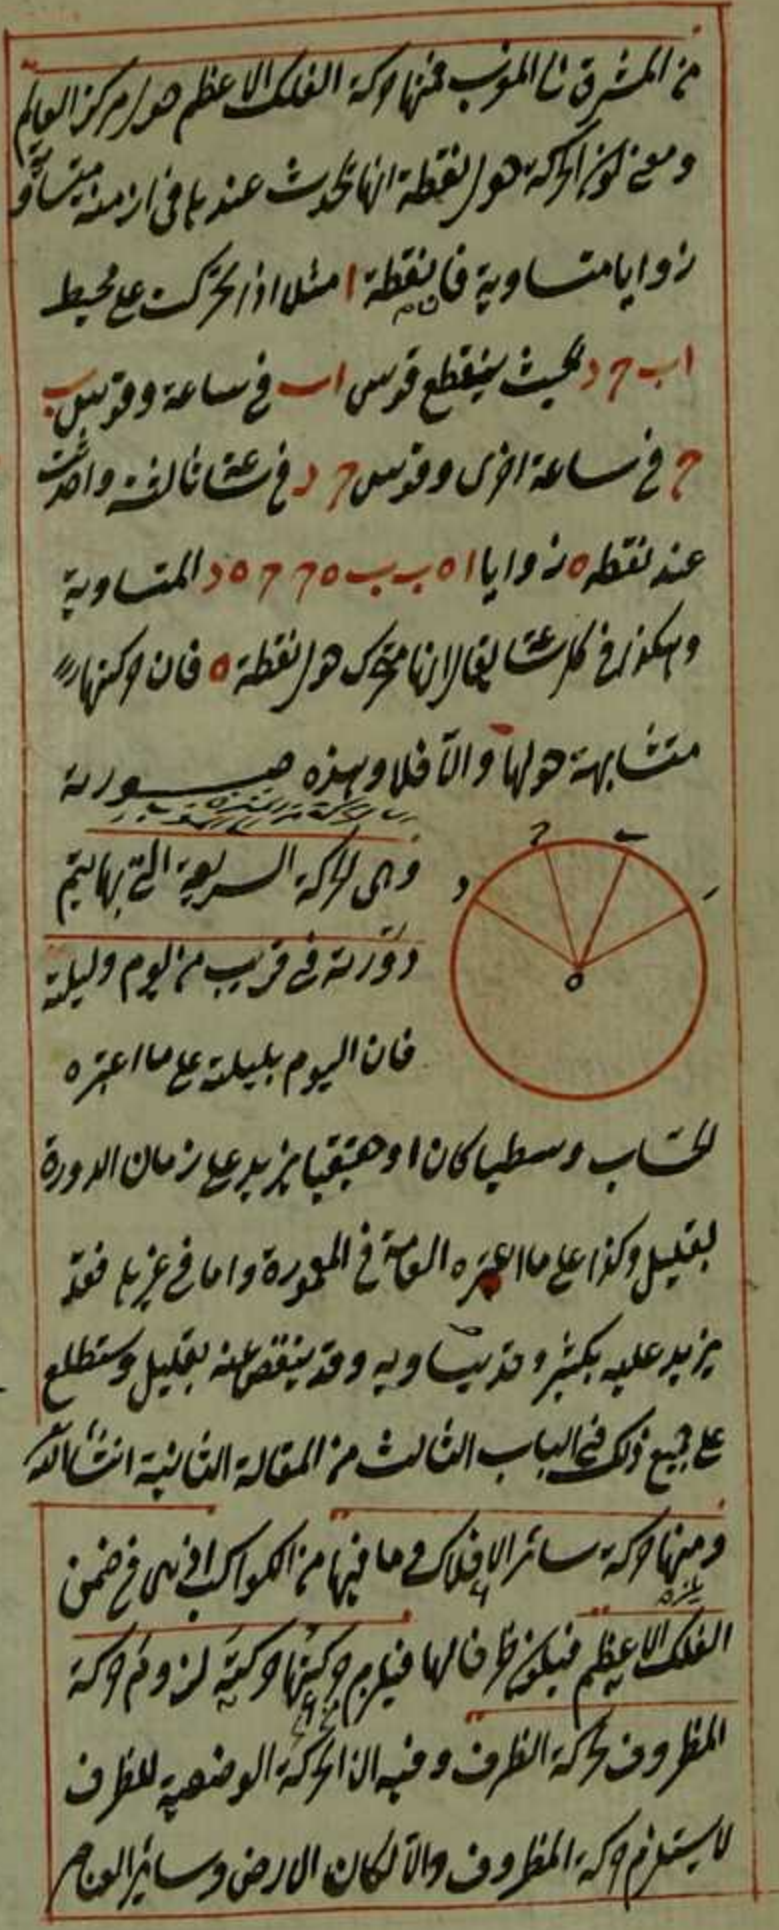 من المشرق الى المغرب فمنها حركة الفلك الاعظم حول مركز العالم
ومعنى كون الحركة حول نقطة انها تحدث عندها فى ازمنة متساوية
زوايا متساوية فان نقطة ا مثلا اذا تحركت على محيط
ا ب ح د بحيث ينقطع قوس ا ب فى ساعة وقوس ب
ح فى ساعة اخرى وقوس ح د فى ساعة ثالثة واحدثت
عند نقطه ه زوايا ا ه ب ب ه ح ح ه د المتساوية
وهكذا فى كل ساعة يقال انها متحرك حول نقطة ه فان حركتها
متشابهة حولها والا فلا وهذه صورته
ا ب ح د ه
وهى الحركة السريعة التى بها يتم
دورته فى قريب من يوم وليلة
فان اليوم بليلته على ما اعتبره
الحساب وسطيا كان او حقيقيا يزيد على زمان الدورة
بقليل وكذا على ما اعتبره العامة فى المعمورة واما فى غيرها فقد
يزيد عليه بكثير وقد يساويه وقد ينقص عنه بقليل وستطلع
على جميع ذلك فى الباب الثالث من المقالة الثانية انشاء الله
ومنها حركة سائر الافلاك وما فيها من الكواكب اذ هى فى ضمن
الفلك الاعظم فيكون ظرفا لها فيلزم حركتها حركته لزوم حركة
المظروف لحركة الظرف وفيه ان الحركة الوضعية للظرف
لا يستلزم حركة المظروف والا لكان الارض وسائر العناصر